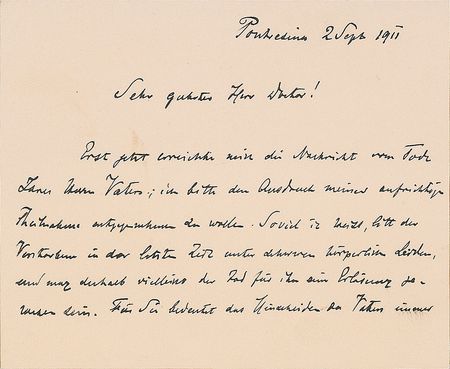 Pontresina 2 Sept 1911
Sehr geehrter Herr Doctor!
Erst jetzt erreichte mich die Nachricht vom Tode
Ihres Herrn Vaters; ich bitte den Ausdruck meiner aufrichtigen
Theilnahme entgegennehmen zu wollen. Soviel ich weiss, litt der
Verstorbene in der letzten Zeit unter schweren körperlichen Leiden,
und mag deshalb vielleicht der Tod für ihn eine Erlösung ge-
wesen sein. Für Sie bedeutet das Hinscheiden des Vaters immer